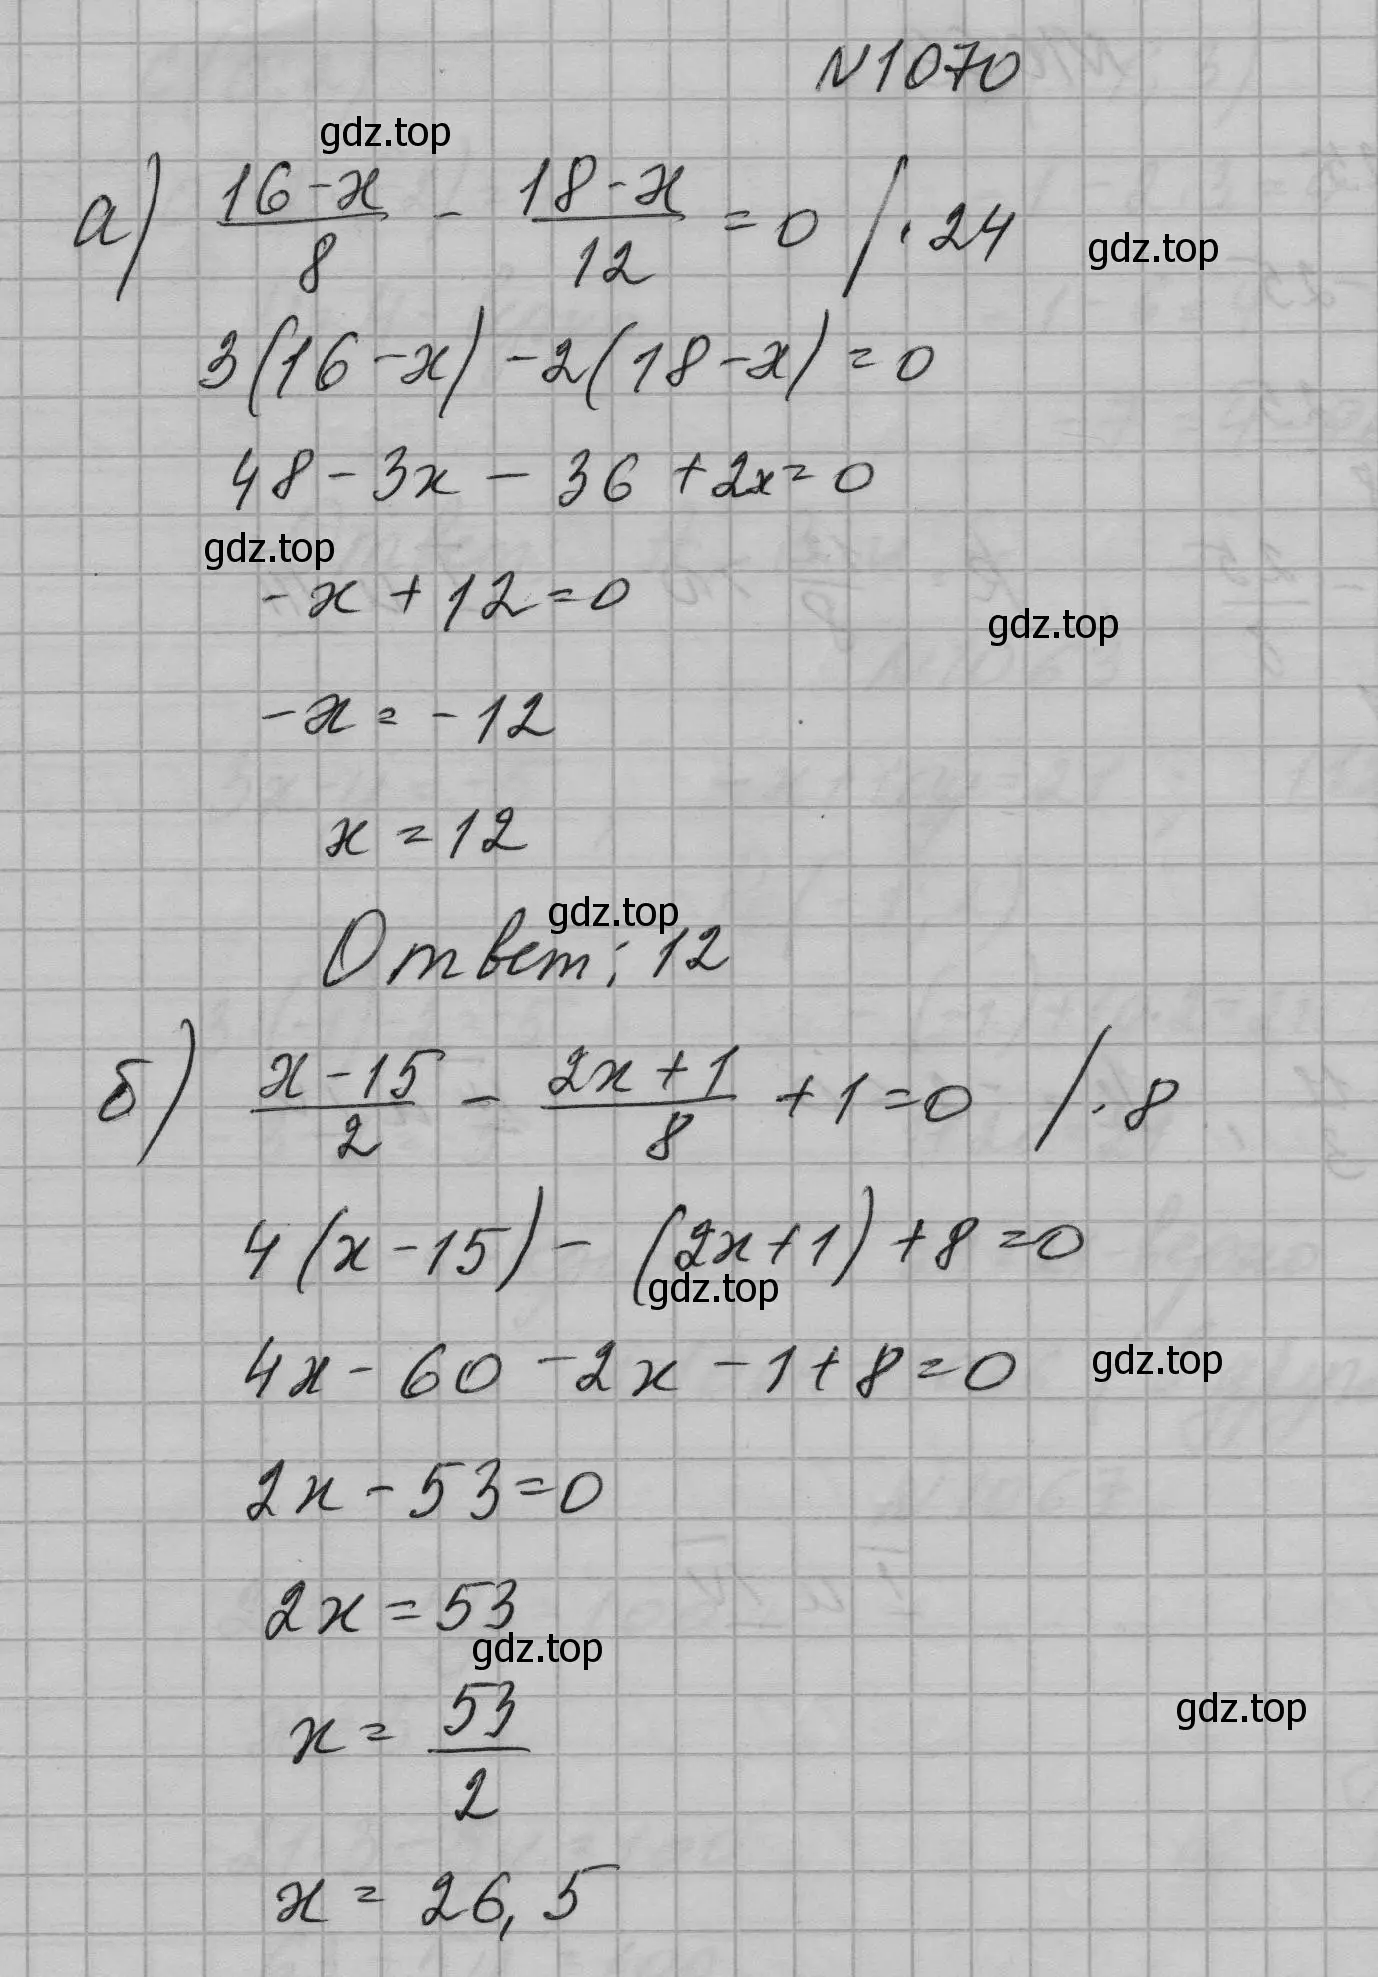 N1070
gdz.top
а) (16-x)/8 - (18-x)/12 = 0 / · 24
gdz.top
3(16-x) - 2(18-x) = 0
48 - 3x - 36 + 2x = 0
gdz.top
-x + 12 = 0
gdz.top
-x = -12
x = 12
gdz.top
Ответ: 12
б) (x-15)/2 - (2x+1)/8 + 1 = 0 / · 8
4(x-15) - (2x+1) + 8 = 0
gdz.top
4x - 60 - 2x - 1 + 8 = 0
gdz.top
2x - 53 = 0
2x = 53
gdz.top
x = 53/2
gdz.top
x = 26,5